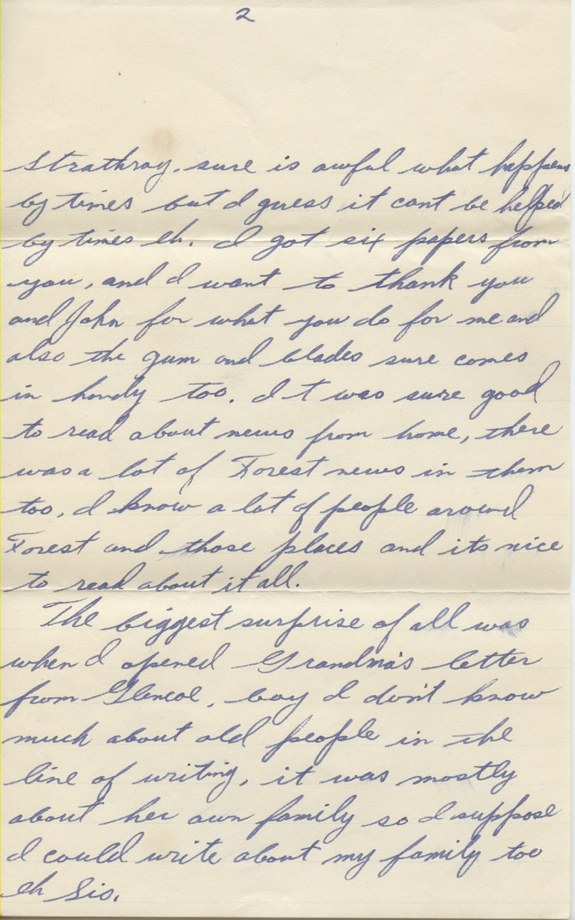 2
Strathroy, sure is awful what happens
by times but I guess it cant be helped
by times eh. I got six papers from
you, and I want to thank you
and John for what you do for me and
also the gum and blades sure comes
in handy too. It was sure good
to read about news from home, there
was a lot of Forest news in them
too, I know a lot of people around
Forest and those places and its nice
to read about it all.
The biggest surprise of all was
when I opened Grandma's letter
from Glencoe, boy I don't know
much about old people in the
line of writing, it was mostly
about her own family so I suppose
I could write about my family too
eh Sis.